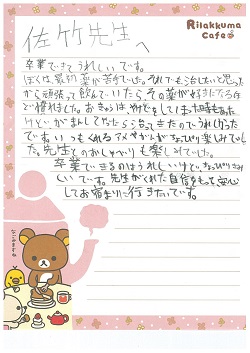 Rilakkuma
Cafe
佐竹先生へ
卒業できてうれしいです。
ぼくは、最初薬が苦手でした。それでも治したいと思った
から頑張って飲んでいたら、その薬が好きになる
で慣れました。おきゅうは、やけどをしてしまった時もあった
けどがまんしてやったら治ってきたのでうれしかった
です。いつもくれるアメやガムがちょっぴり楽しみでし
た。先生とのおしゃべりも楽しみでした。
卒業できるのはうれしいけど、ちょっぴりさみ
しいです。先生がくれた自信をもって安心
してお宿まりに行きたいです。
なごみますね